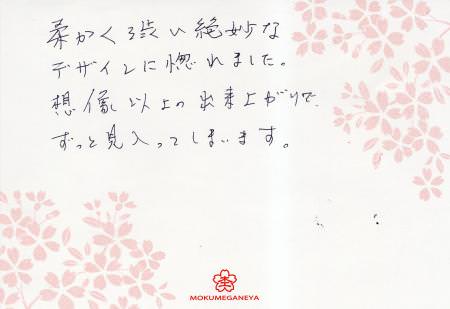 柔かく渋い絶妙な
デザインに惚れました。
想像以上の出来上がりで、
ずっと見入ってしまいます。
MOKUMEGANEYA